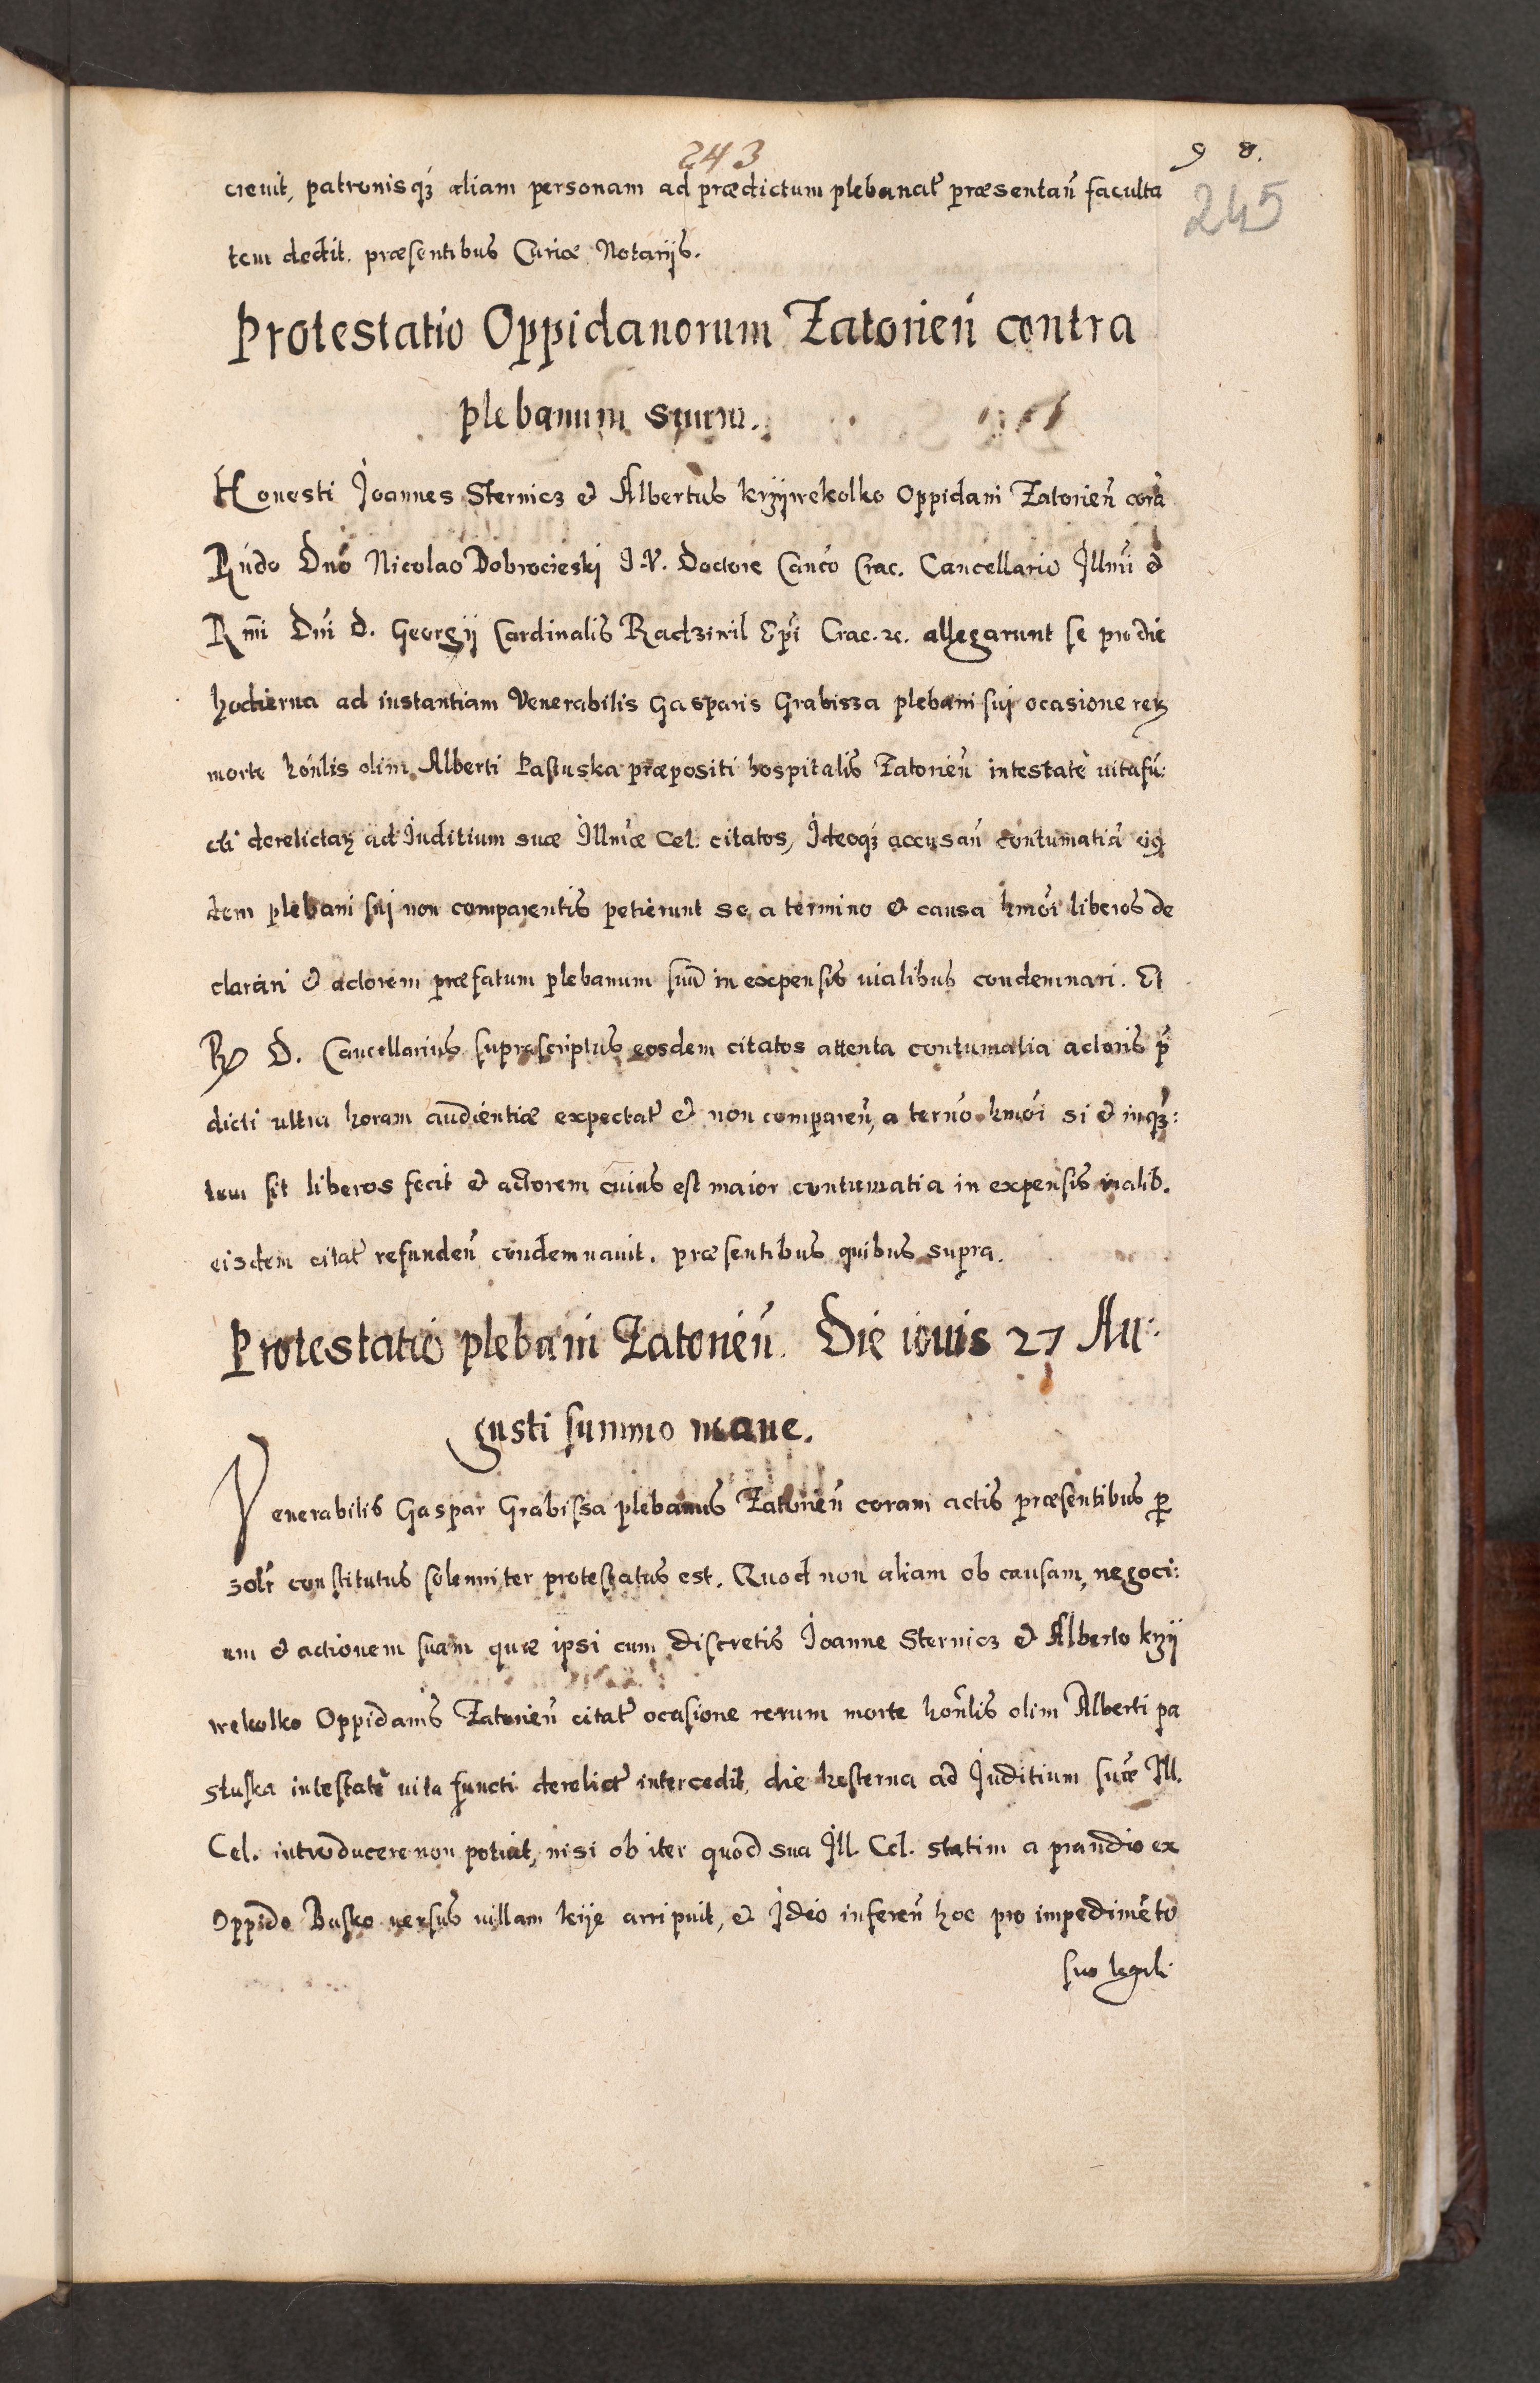 243
9 8.
245
creuit, patronisqʒ aliam personam ad prædictum plebanat̃ præsentañ faculta
tem dedit. præsentibus Curiæ Notarijs.
Protestatio Oppidanorum Zatorień contra
plebanum suum.
Honesti Joannes Sternicz et Albertus krzywekolko Oppidani Zatorień corã
Rńdo Dnõ Nicolao Dobrocieski J. V. Doctore Canćo Crac. Cancellario Jllmi̇ et
Rm̃i Dnĩ D. Georgij Cardinalis Radziwil Ep̃i Crac. ⁊c. allegarunt se pro die
hodierna ad instantiam Venerabilis Gasparis Grabisza plebani sui ocasione reꝝ
morte hońlis olim Alberti Pastuska præpositi hospitalis Zatorień intestatè uita fũ:
cti derelictaꝝ ad Juditium suæ Jllm̃æ Cel. citatos, Jdeoqʒ accusañ contumatiã eiꝰ
dem plebani sui non comparentis petierunt se a termino et causa hmõi liberos de
clarari et actorem præfatum plebanum suũ in expensis uialibus condemnari. Et
R D. Cancellarius suprascriptus eosdem citatos attenta contumatia actoris p̃
dicti ultra horam audientiæ expectat̃ et non compareñ, a terñno hmõi si et inqʒ:
tum sit liberos fecit et actorem cuius est maior contumatia in expensis uialib.
eisdem citat̃ refundeñ condemnauit. præsentibus quibus supra.
Protestatio plebani Zatorień. Die iouis 27 Au:
gusti summo mane.
Venerabilis Gaspar Grabissa plebanus Zatorień coram actis præsentibus ꝑ
solr̃ constitutus solenniter protestatus est. Quod non aliam ob causam, negoci:
um et actionem suam quæ ipsi cum discretis Joanne Sternicz et Alberto krzy
wekolko Oppidanis Zatorień citat̃ ocasione rerum morte honlis olim Alberti pa
stuska intestatè uita functi derelict̃ intercedit, die hesterna ad Juditium suæ Jll.
Cel. introducere non potuit, nisi ob iter quod sua Jll. Cel. statim a prandio ex
Oppido Busko uersus uillam kije arripuit, et Jdeo infereñ hoc pro impedimẽto
suo legali